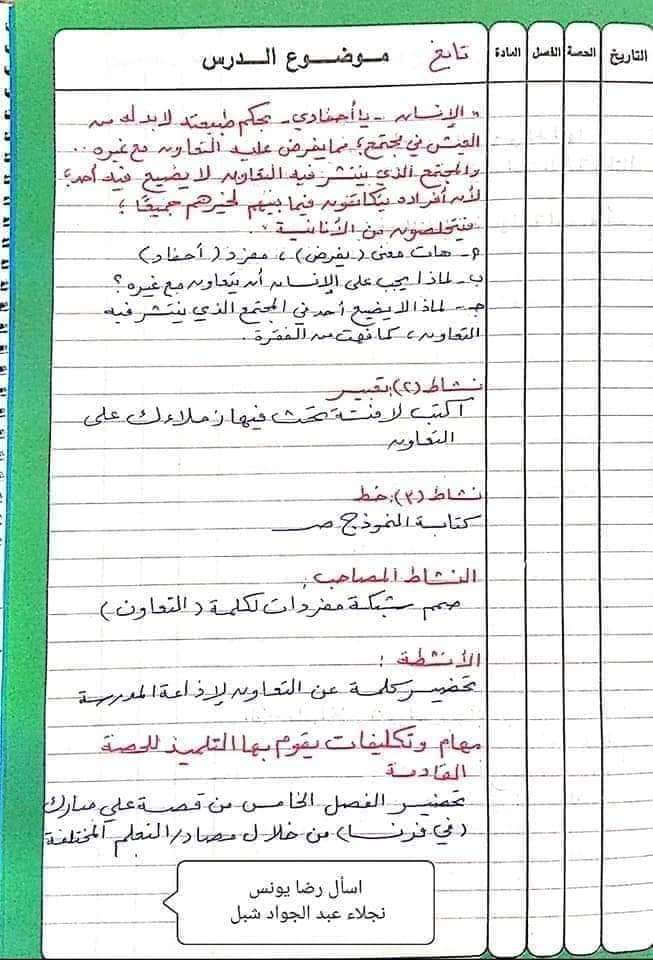 التاريخ الحصة الفصل المادة تابع موضوع الدرس
"الإنسان - يا أحفادي - بحكم طبيعته لابد له من
العيش في مجتمع؛ مما يفرض عليه التعاون مع غيره ..
والمجتمع الذي ينتشر فيه التعاون لا يضيع فيه أحد؛
لأن أفراده يتكاتفون فيما بينهم لخيرهم جميعًا؛
فيتخلصون من الأنانية".
أ- هات معنى (يفرض)، مفرد (أحفاد)
ب- لماذا يجب على الإنسان أن يتعاون مع غيره؟
جـ- لماذا لا يضيع أحد في المجتمع الذي ينتشر فيه
التعاون، كما فهمت من الفقرة.
نشاط (٢): تعبير
اكتب لافتة تحث فيها زملاءك على
التعاون
نشاط (٣): خط
كتابة النموذج صـ
النشاط المصاحب:
صمم شبكة مفردات لكلمة (التعاون)
الأنشطة:
تحضير كلمة عن التعاون لإذاعة المدرسة
مهام وتكليفات يقوم بها التلميذ للحصة
القادمة
تحضير الفصل الخامس من قصة علي مبارك
(في فرنسا) من خلال مصادر التعلم المختلفة
اسأل رضا يونس
نجلاء عبد الجواد شبل